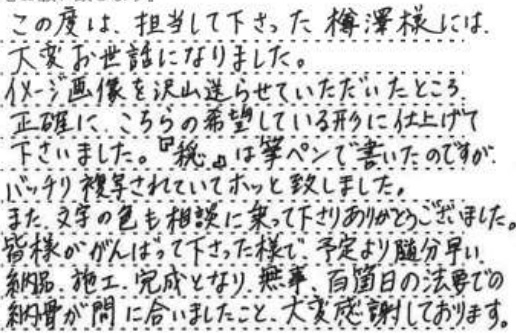 この度は、担当して下さった 樽澤様には、
大変お世話になりました。
イメージ画像を沢山送らせていただいたところ
正確に、こちらの希望している形に仕上げて
下さいました。『穐』は筆ペンで書いたのですが、
バッチリ複写されていてホッと致しました。
また、文字の色も相談に乗って下さりありがとうございました。
皆様ががんばって下さった様で、予定より随分早い、
納品、施工、完成となり、無事、百箇日の法要での
納骨が間に合いましたこと、大変感謝しております。